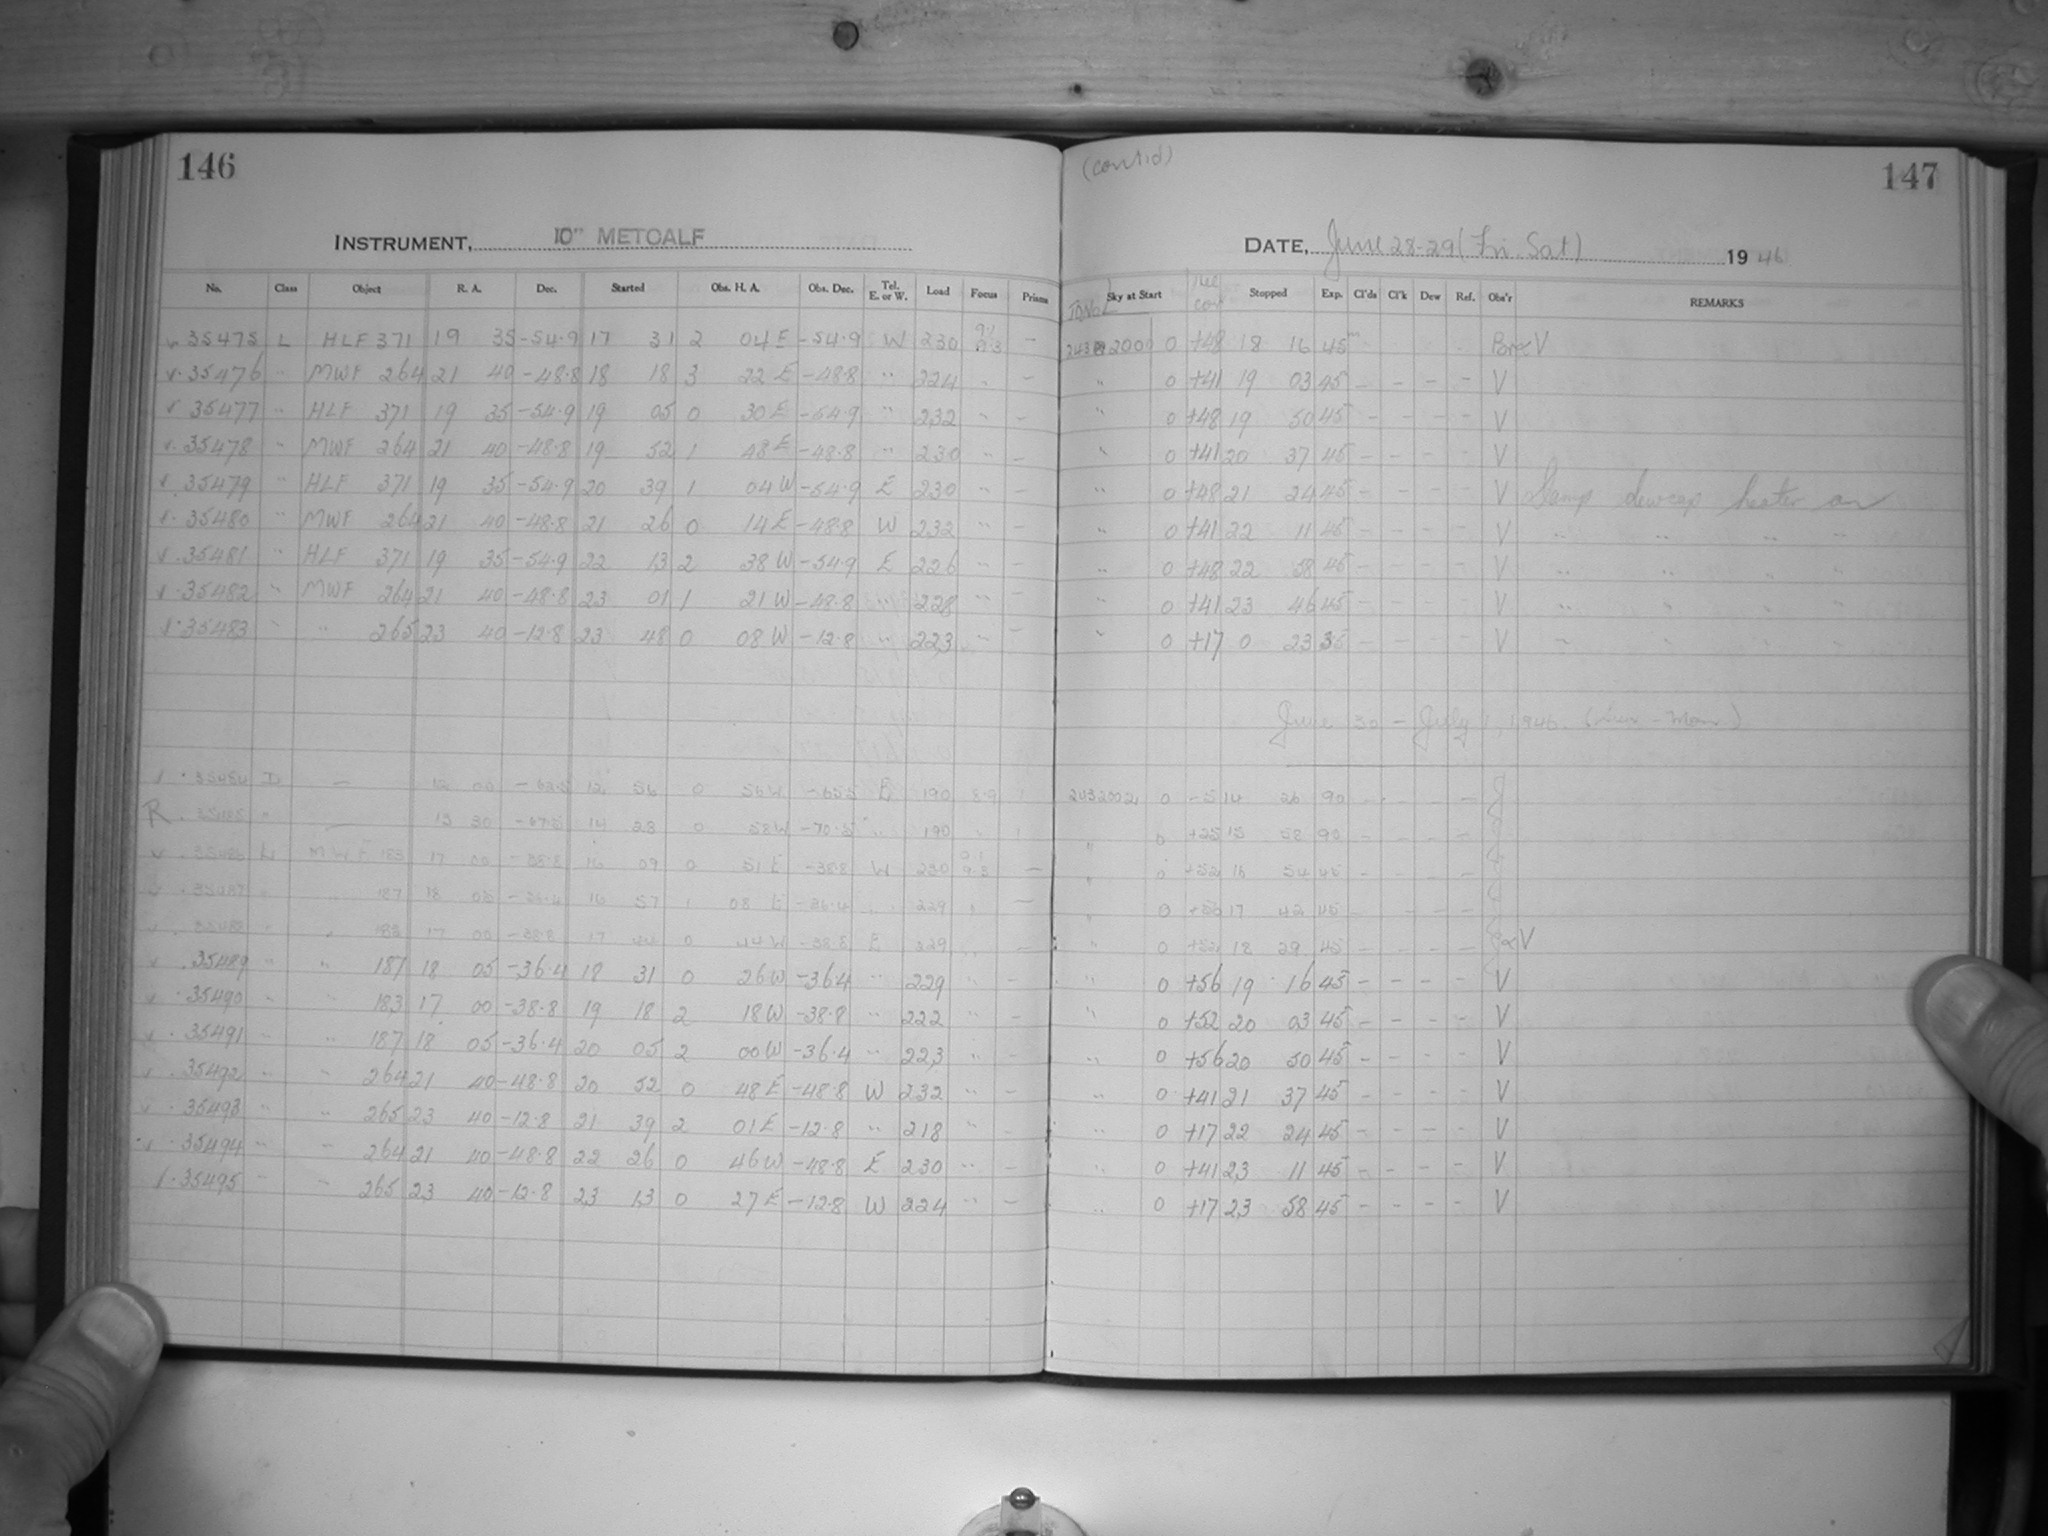 146
INSTRUMENT, 10" METCALF
No. Class Object R. A. Dec. Started Obs. H. A. Obs. Dec. Tel. E. or W. Load Focus Prisms
35475 L HLF 371 19 35 -54.9 17 31 2 04 E -54.9 W 230 9.1 9.3 -
35476 " MWF 264 21 40 -48.8 18 18 3 22 E -48.8 " 224 " -
35477 " HLF 371 19 35 -54.9 19 05 0 30 E -54.9 " 232 " -
35478 " MWF 264 21 40 -48.8 19 52 1 48 E -48.8 " 230 " -
35479 " HLF 371 19 35 -54.9 20 39 1 04 W -54.9 E 230 " -
35480 " MWF 264 21 40 -48.8 21 26 0 14 E -48.8 W 232 " -
35481 " HLF 371 19 35 -54.9 22 13 2 38 W -54.9 E 226 " -
35482 " MWF 264 21 40 -48.8 23 01 1 21 W -48.8 " 228 " -
35483 " " 265 23 40 -12.8 23 48 0 08 W -12.8 " 223 " -
35484 - 12 00 12 56 0 56 W E 190 8.9
R 35485 " 13 30 14 28 0 58 W -70.5 " 190 "
35486 MWF 183 17 00 -38.8 16 09 0 51 E -38.8 W 230 9.1 9.3 -
35487 " " 187 18 05 -36.4 16 57 1 08 E -36.4 " 229 " -
35488 " " 183 17 00 -38.8 17 44 0 44 W -38.8 E 229 " -
35489 " " 187 18 05 -36.4 18 31 0 26 W -36.4 " 229 " -
35490 " " 183 17 00 -38.8 19 18 2 18 W -38.8 " 222 " -
35491 " " 187 18 05 -36.4 20 05 2 00 W -36.4 " 223 " -
35492 " " 264 21 40 -48.8 20 52 0 48 E -48.8 W 232 " -
35493 " " 265 23 40 -12.8 21 39 2 01 E -12.8 " 218 " -
35494 " " 264 21 40 -48.8 22 26 0 46 W -48.8 E 230 " -
35495 " " 265 23 40 -12.8 23 13 0 27 E -12.8 W 224 " -
(cont'd)
147
DATE, June 28-29 (Fri. Sat) 1946
Sky at Start Stopped Exp. Cl'ds Cl'k Dew Ref. Obs'r REMARKS
0 +48 18 16 45
" 0 +41 19 03 45 - - - - V
" 0 +48 19 50 45 - - - - V
" 0 +41 20 37 45 - - - - V
" 0 +48 21 24 45 - - - - V Damp dewcap heater on
" 0 +41 22 11 45 - - - - V " " " "
" 0 +48 22 58 45 - - - - V " " " "
" 0 +41 23 46 45 - - - - V " " " "
" 0 +17 0 23 35 - - - - V " " " "
June 30 - July 1, 1946. (Sun - Mon)
0 14 26 90 - - - -
" 0 15 58 90 - - - -
" 0 +52 16 54 45 - - - -
" 0 +56 17 42 45 - - - -
" 0 +52 18 29 45 - - - -
" 0 +56 19 16 45 - - - - V
" 0 +52 20 03 45 - - - - V
" 0 +56 20 50 45 - - - - V
" 0 +41 21 37 45 - - - - V
" 0 +17 22 24 45 - - - - V
" 0 +41 23 11 45 - - - - V
" 0 +17 23 58 45 - - - - V